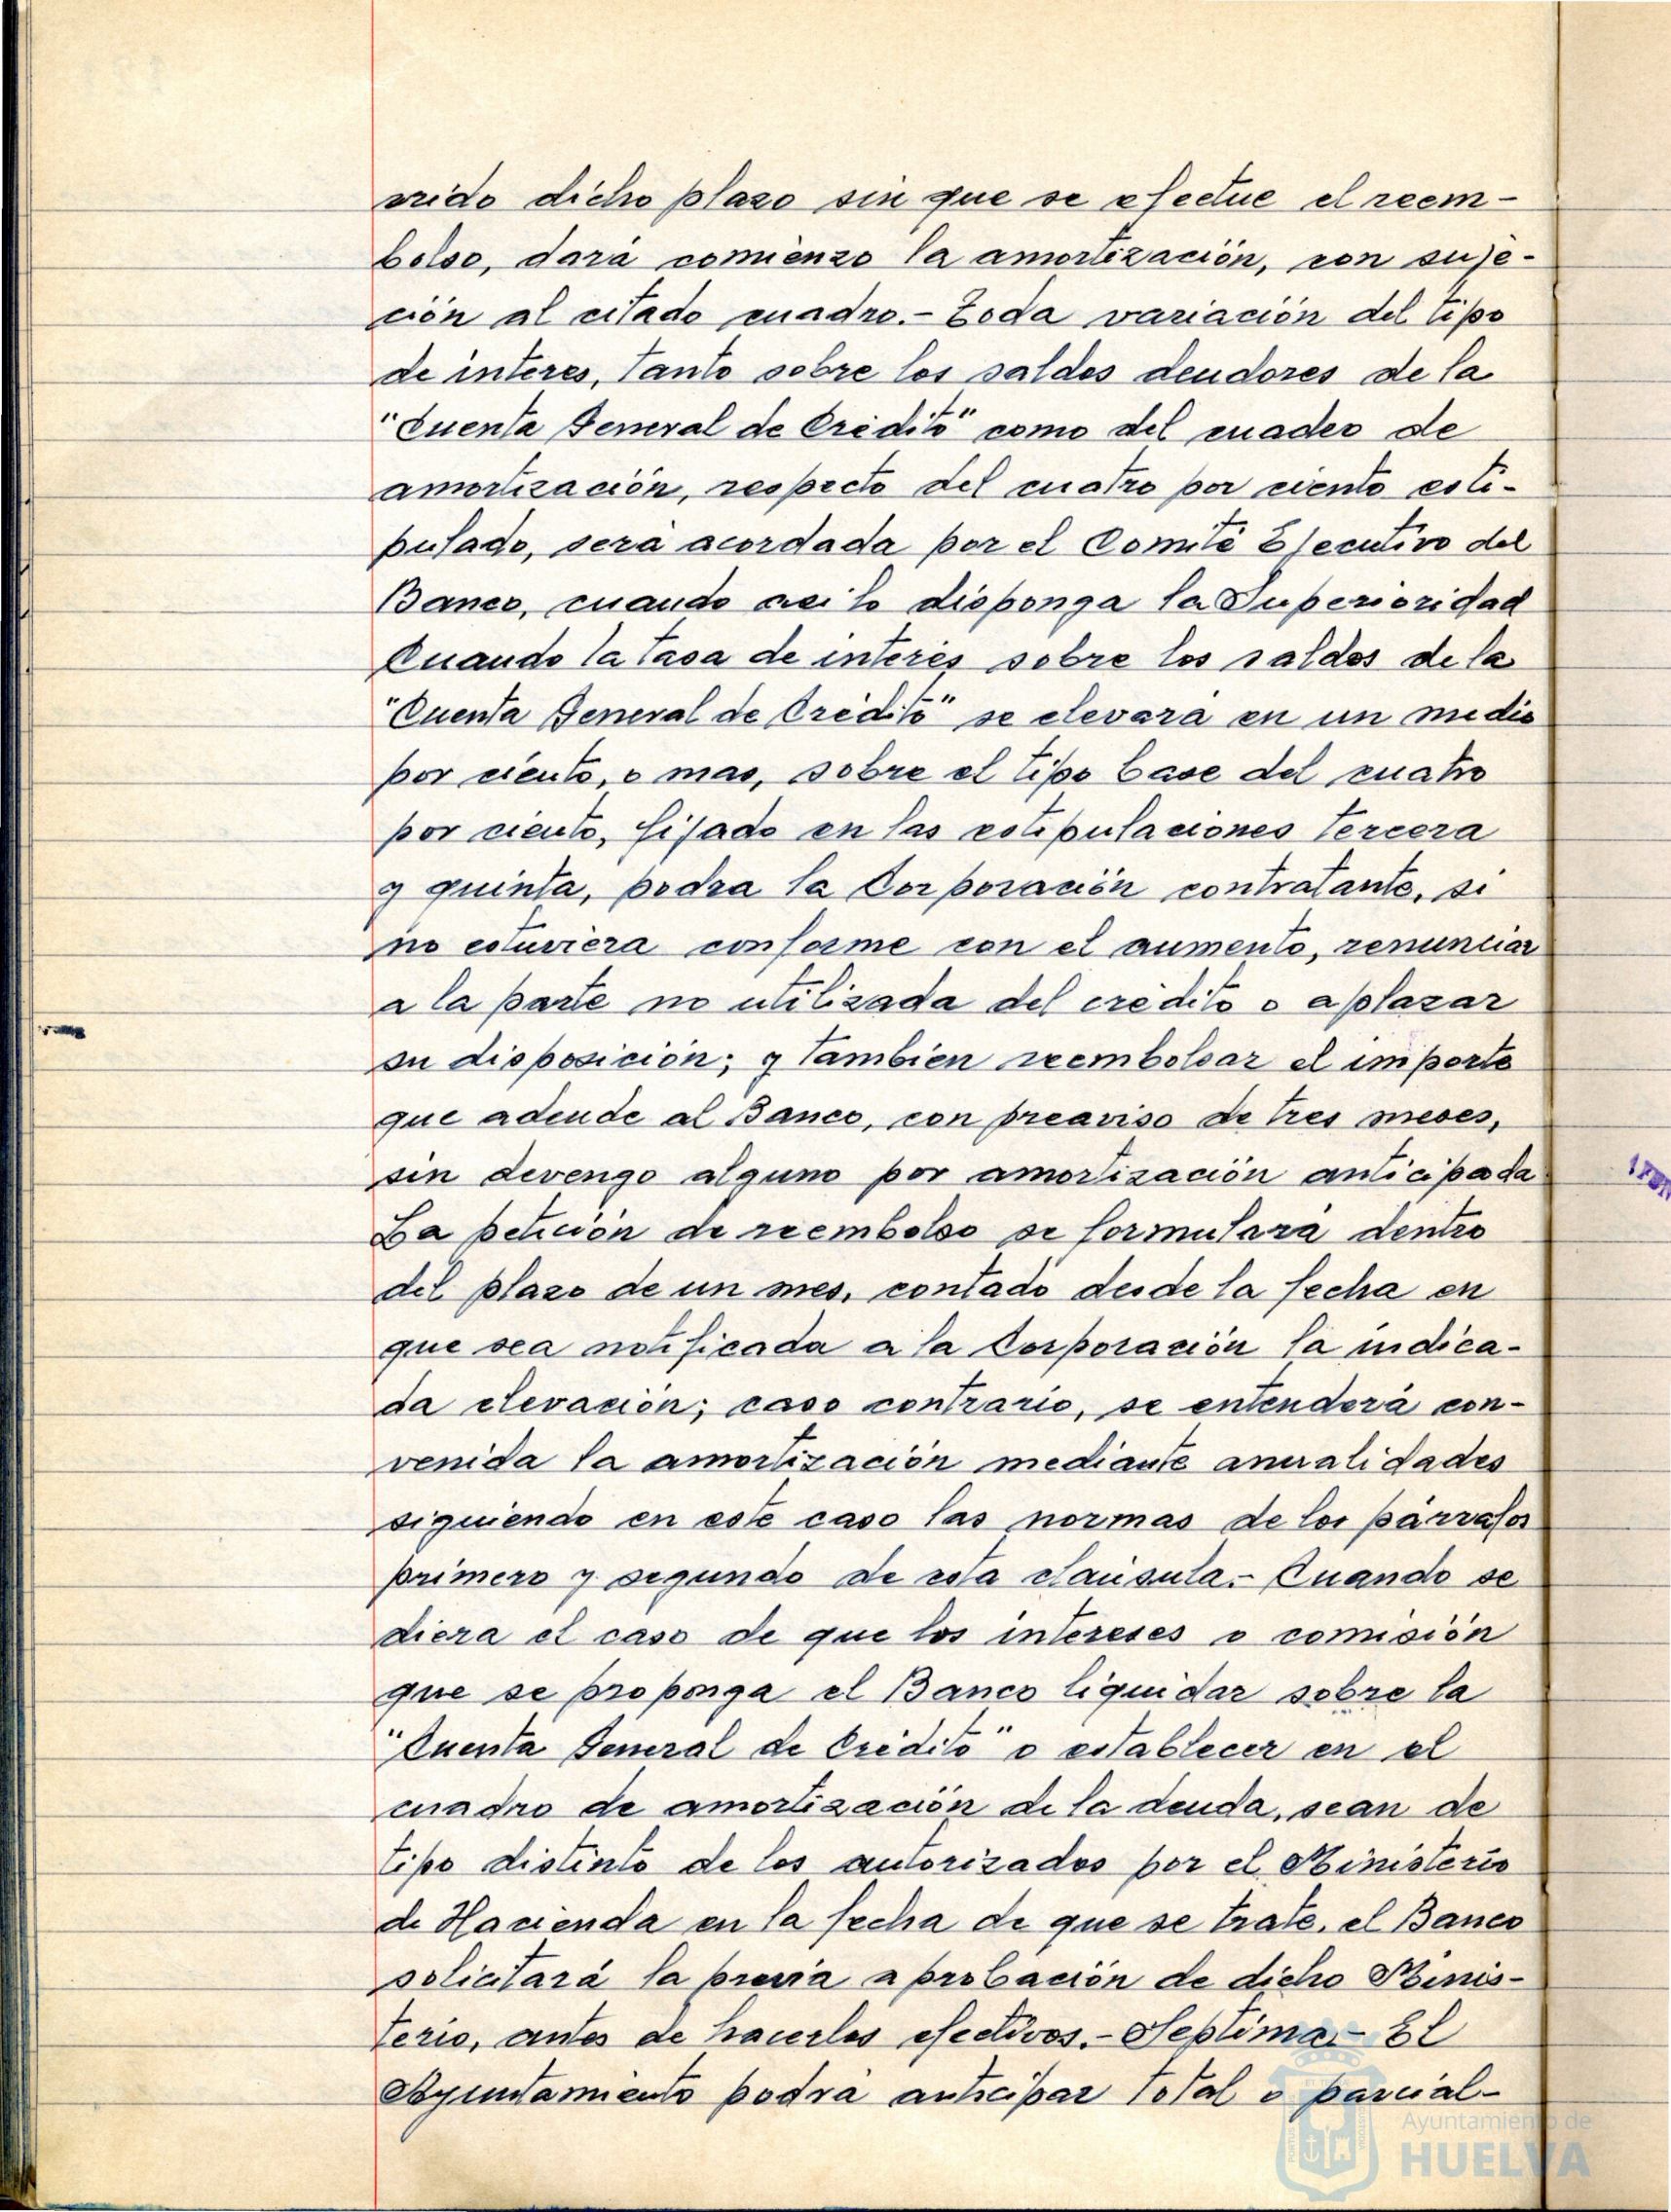 rrido dicho plazo sin que se efectue el reem-
bolso, dará comienzo la amortización, con suje-
ción al citado cuadro.- Toda variación del tipo
de interes, tanto sobre los saldos deudores de la
"Cuenta General de Crédito" como del cuadro de
amortización, respecto del cuatro por ciento esti-
pulado, será acordada por el Comité Ejecutivo del
Banco, cuando asi lo disponga la Superioridad
Cuando la tasa de interés sobre los saldos de la
"Cuenta General de Crédito" se elevara en un medio
por ciento, o mas, sobre el tipo base del cuatro
por ciento, fijado en las estipulaciones tercera
y quinta, podra la Corporación contratante, si
no estuviera conforme con el aumento, renunciar
a la parte no utilizada del crédito o aplazar
su disposición; y tambien reembolsar el importe
que adeude al Banco, con preaviso de tres meses,
sin devengo alguno por amortización anticipada
La petición de reembolso se formulará dentro
del plazo de un mes, contado desde la fecha en
que sea notificada a la Corporación la indica-
da elevación; caso contrario, se entenderá con-
venida la amortización mediante anualidades
siguiendo en este caso las normas de los párrafos
primero y segundo de esta claúsula.- Cuando se
diera el caso de que los intereses o comisión
que se proponga el Banco liquidar sobre la
"Cuenta General de Crédito" o establecer en el
cuadro de amortización de la deuda, sean de
tipo distinto de los autorizados por el Ministerio
de Hacienda en la fecha de que se trate, el Banco
solicitará la previa aprobación de dicho Minis-
terio, antes de hacerlos efectivos.- Septima.- El
Ayuntamiento podrá anticipar total o parcial-
Ayuntamiento de
HUELVA